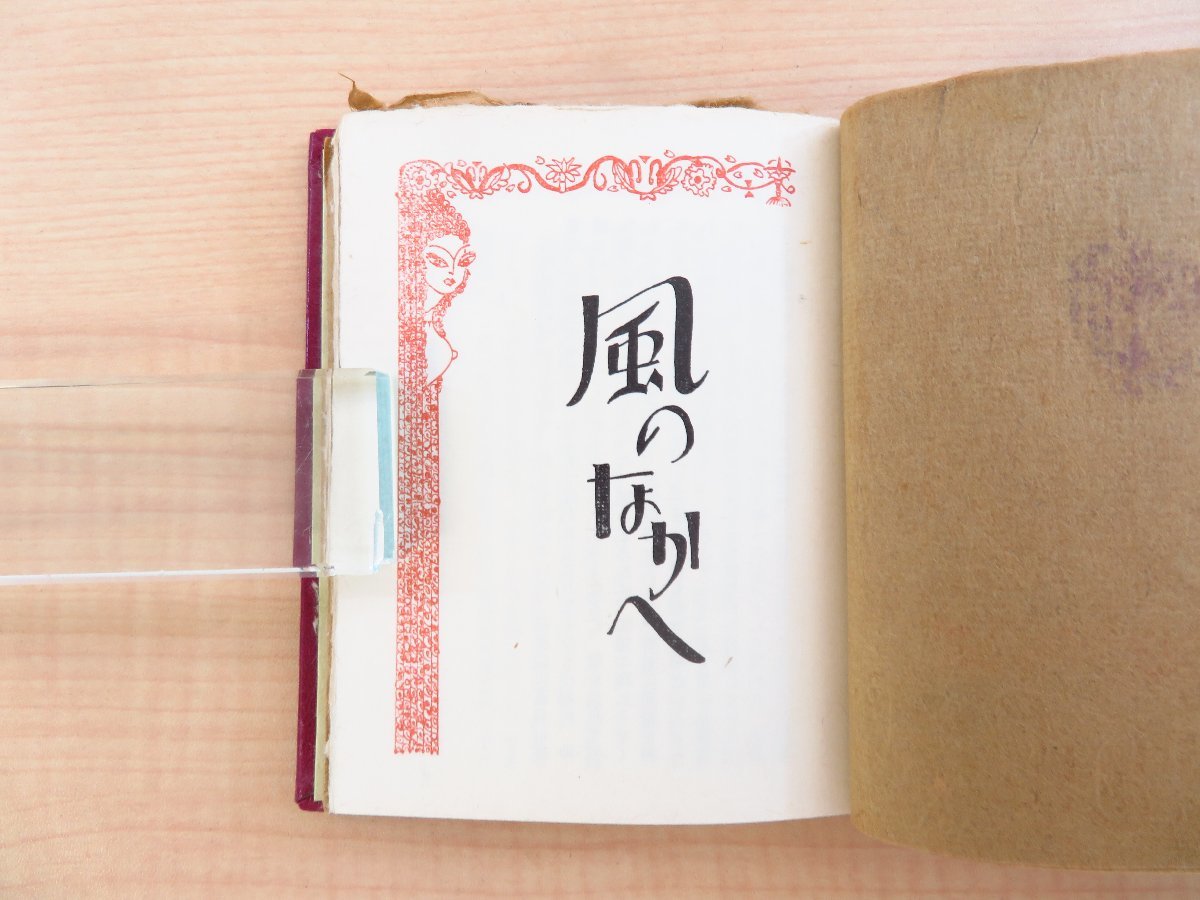 風のなかへ